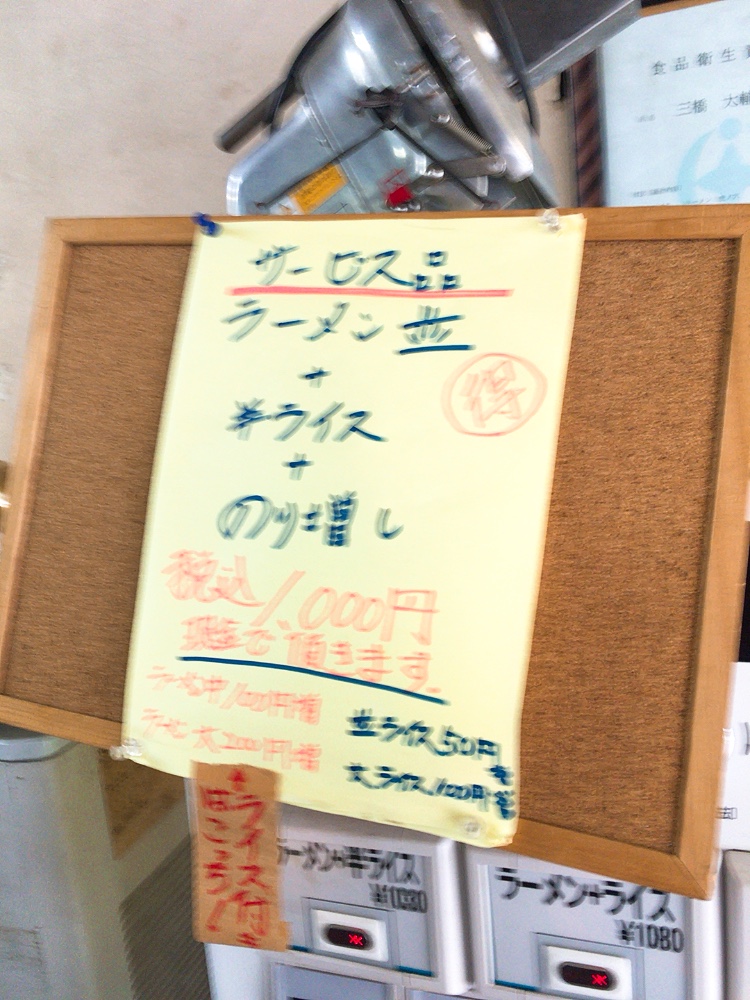 食品衛生
三橋 大輔
サービス品
ラーメン並
+
得
半ライス
+
のり増し
税込1,000円
現金で、頂きます。
ラーメン中100円増
ラーメン大200円増
並ライス50円増
大ライス100円増
↑ライス付き
はこっち!
ラーメン+半ライス
ラーメン+ライス
¥1080